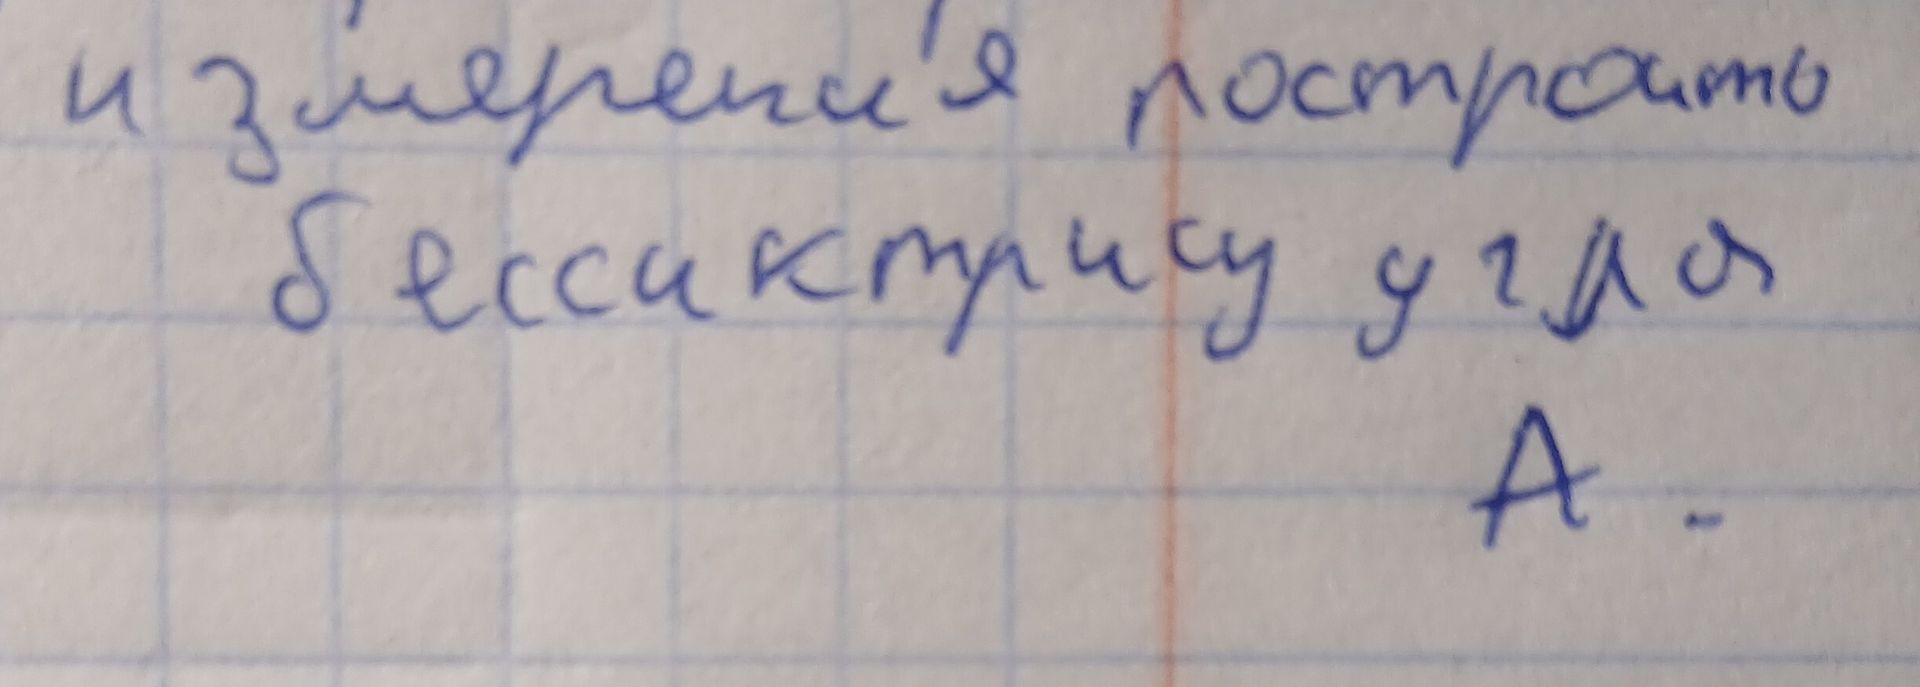 измерения построить
бессиктрису угла
А.